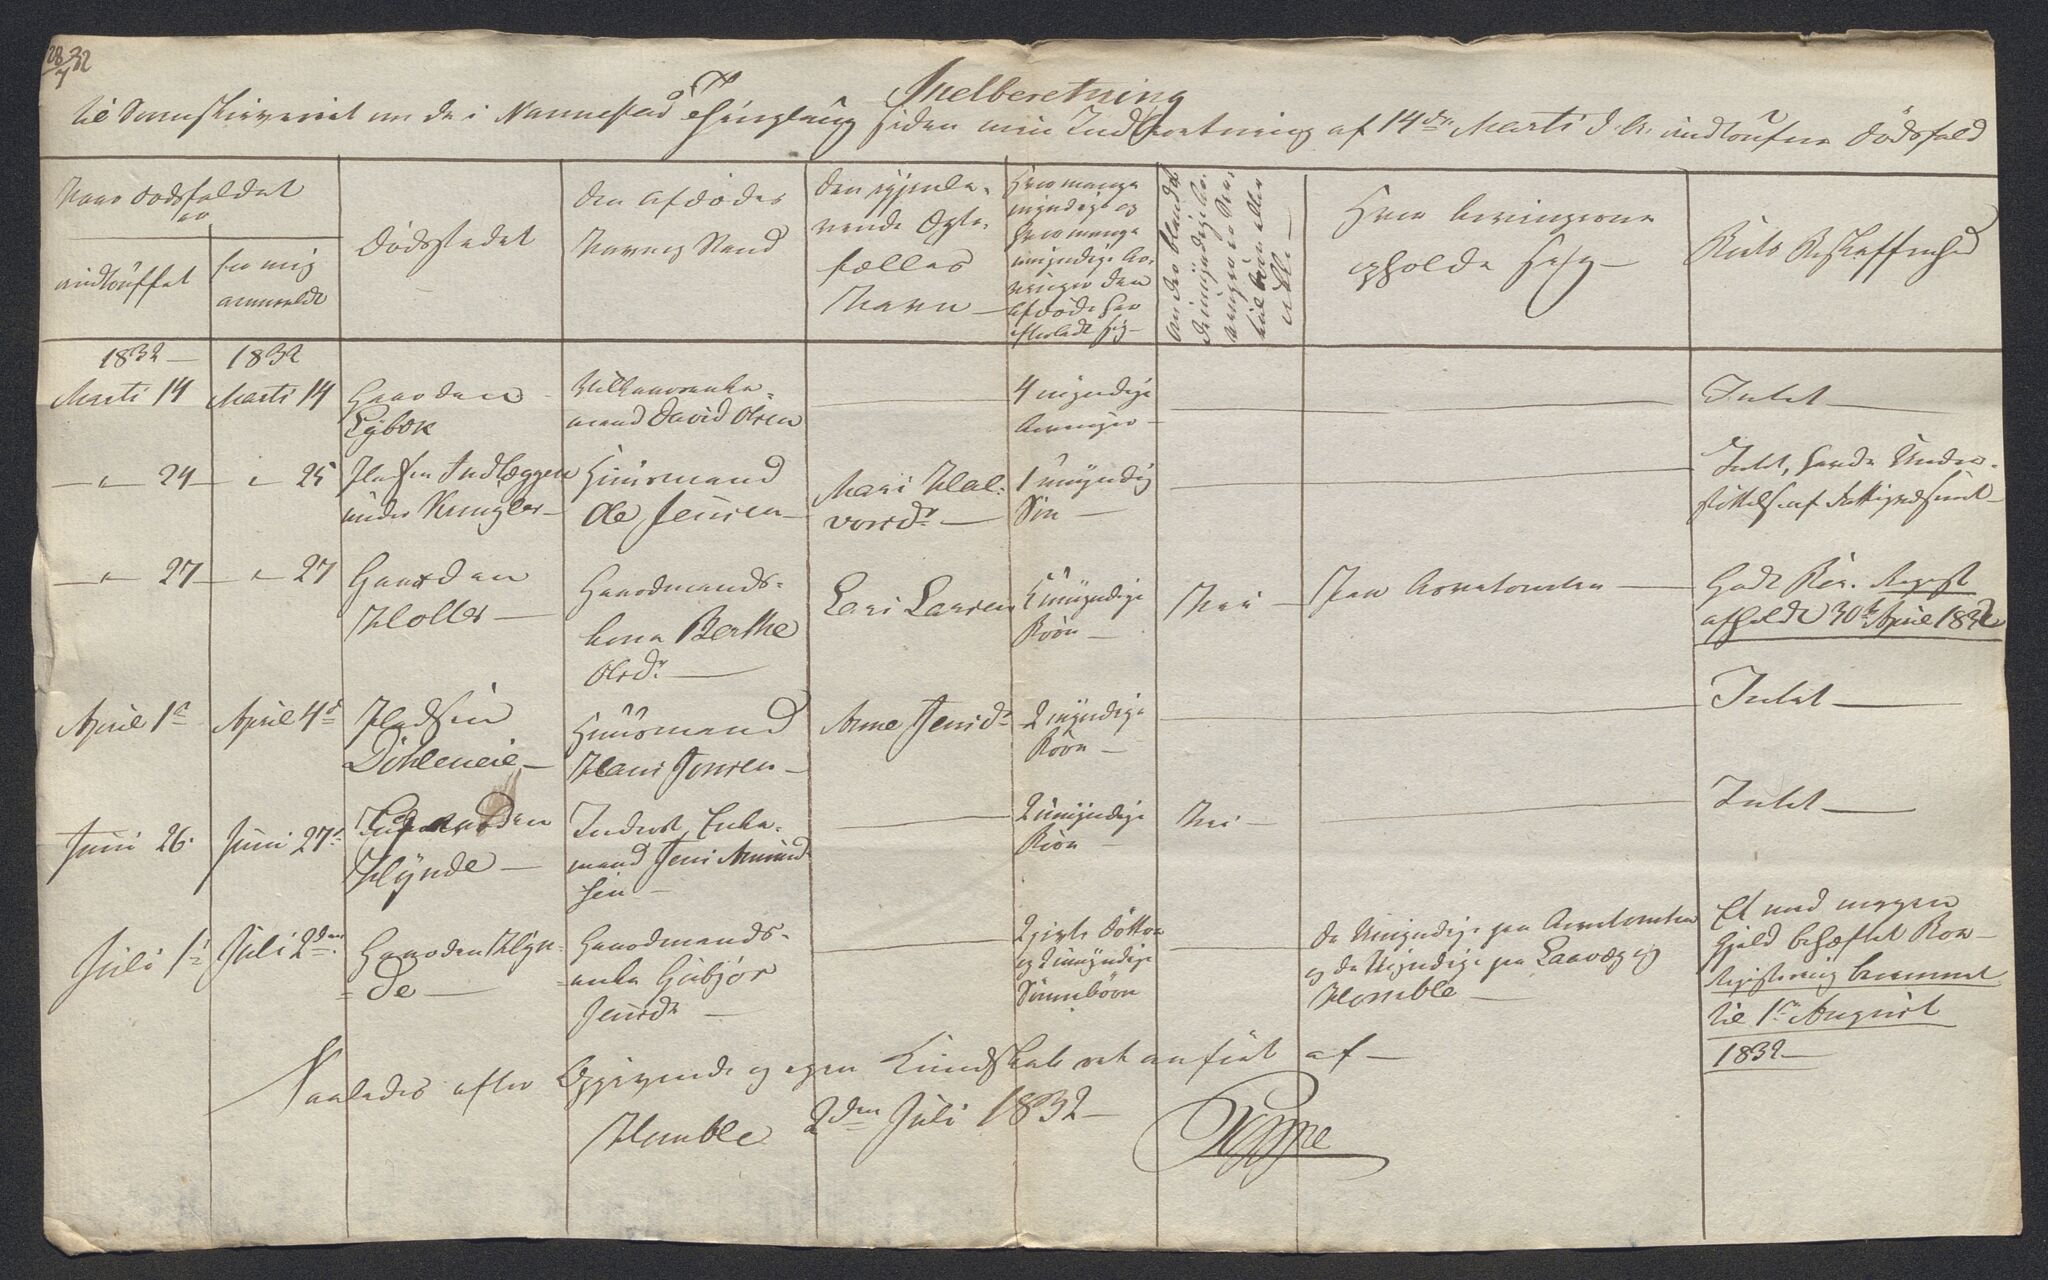 28/7 32
Indberetning
til Sorenskriveriet om de i Nannestad Thinglaug siden min Indberetning af 14de Marti d. A. indtrufne Dødsfald
Naar Dødsfaldet
er
indtruffet
for mig
anmeldt
Dødsstedet
den afdødes
Navn og Stand
den efterle-
vende Ægte-
fælles
Navn
Hvor mange
myndige og
hvor mange
umyndige Ar-
vinger den
afdøde har
efterladt sig
Om der blandt
de umyndige Ar-
vinger er
eller
ikke
Hvor Arvingerne
opholde sig
Boets Beskaffenhed
1832 1832
Marti 14 Marti 14 Gaarden
Eybak
Vilkaarsenke-
mand David Olsen
4 myndige
Arvinger
Intet
24 25 Pladsen Indlæggen
under Kringler
Huusmand
Ole Jensen
Mari Hal-
vorsd.
1 umyndig
Søn
Intet, havde Under-
støttelse af Fattigvæsenet
27 27 Gaarden
Holler
Gaardmands-
kone Berthe
Olsd.
Lars Larsen
umyndige
Børn
Nei
Paa Arvetomten
Godt Boe. Regist.
afholdt 30te April 1832
April 1st April 4d Pladsen
Dohleneie
Huusmand
Hans Jensen
Anne Jensd.
2 myndige
Børn
Intet
Juni 26. Juni 27d Gaarden
Hynde
Inderst, Enke-
mand Jens Amund-
sen
2 umyndige
Børn
Nei
Intet
Juli 1st Juli 2den Gaarden Hyn-
de
Gaardmands-
enke Gubjør
Jensdr
2 gifte Døttre
og 2 umyndige
Sønnebørn
de Umyndige paa Arvetomten
og de Myndige paa Laavæg og
Homble
Et med megen
Gjeld behæftet Boe
Registrering berammet
til 1st August
1832
Saaledes efter Opgivende og egen Kundskab ret anført af
Homble 2den Juli 1832